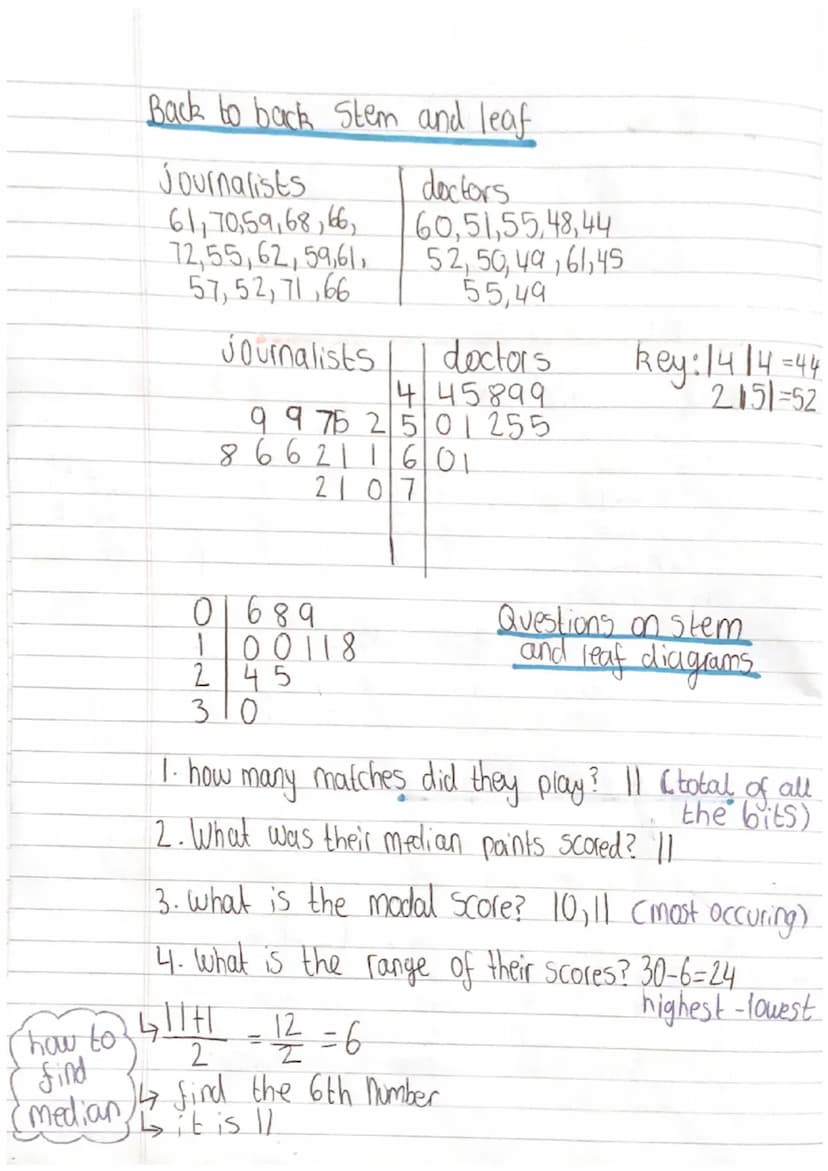 Back to back Stem and leaf
journalists | doctors
61, 70, 59, 68, 66, | 60, 51, 55, 48, 44
72, 55, 62, 59, 61, | 52, 50, 49, 61, 45
57, 52, 71, 66 | 55, 49
journalists | | doctors key: |4|4 = 44
4 | 4 5 8 9 9 2|5| = 52
9 9 7 5 2 | 5 | 0 1 2 5 5
8 6 6 2 1 1 | 6 | 0 1
2 1 0 | 7 |
0 | 6 8 9 Questions on stem
1 | 0 0 1 1 8 and leaf diagrams
2 | 4 5
3 | 0
1. how many matches did they play? 11 (total of all
the bits)
2. What was their median points scored? 11
3. What is the modal score? 10, 11 (most occuring)
4. What is the range of their scores? 30-6=24
highest - lowest
how to find median
↳ 11+1/2 = 12/2 = 6
↳ find the 6th number
↳ it is 11